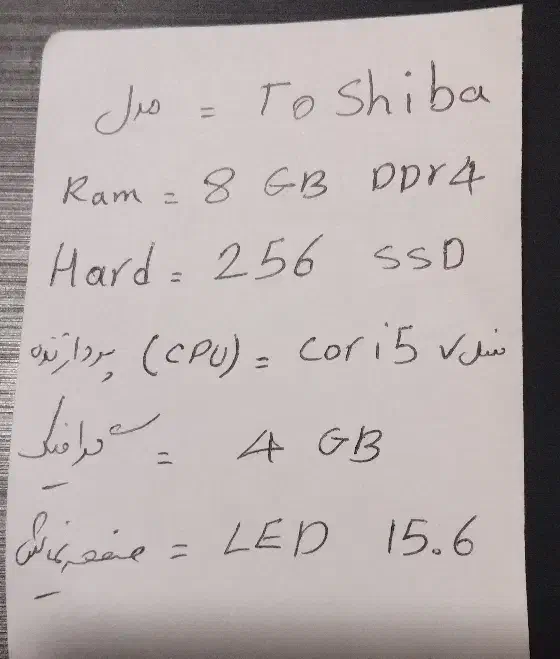 مدل = ToShiba
Ram = 8 GB DDr4
Hard = 256 SSD
پردازنده (CPU) = cor i5 نسل ۷
گرافیک = 4 GB
صفحه نمایش = LED 15.6